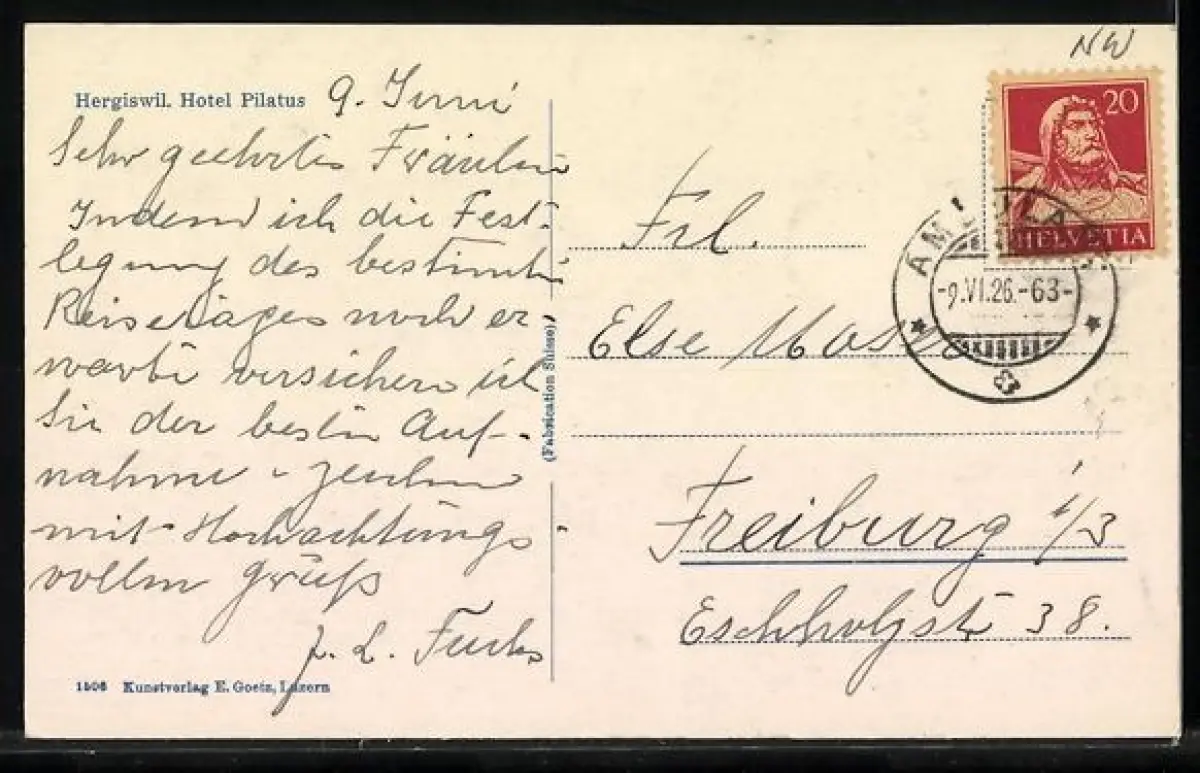 NW
Hergiswil. Hotel Pilatus
9. Juni
Sehr geehrtes Fräulein
Indem ich die Fest-
legung des bestimten
Reisetages noch er-
warte versichern ich
Sie der besten Auf-
nahme & zeichne
mit Hochachtungs-
vollem Grüß
J. L. Fuchs
1506 Kunstverlag E. Goetz, Luzern
(Fabrication Suisse)
20
HELVETIA
AMBULANT
-9.VI.26.-63-
Frl.
Else
Freiburg i/B
Eschholzstr 38.